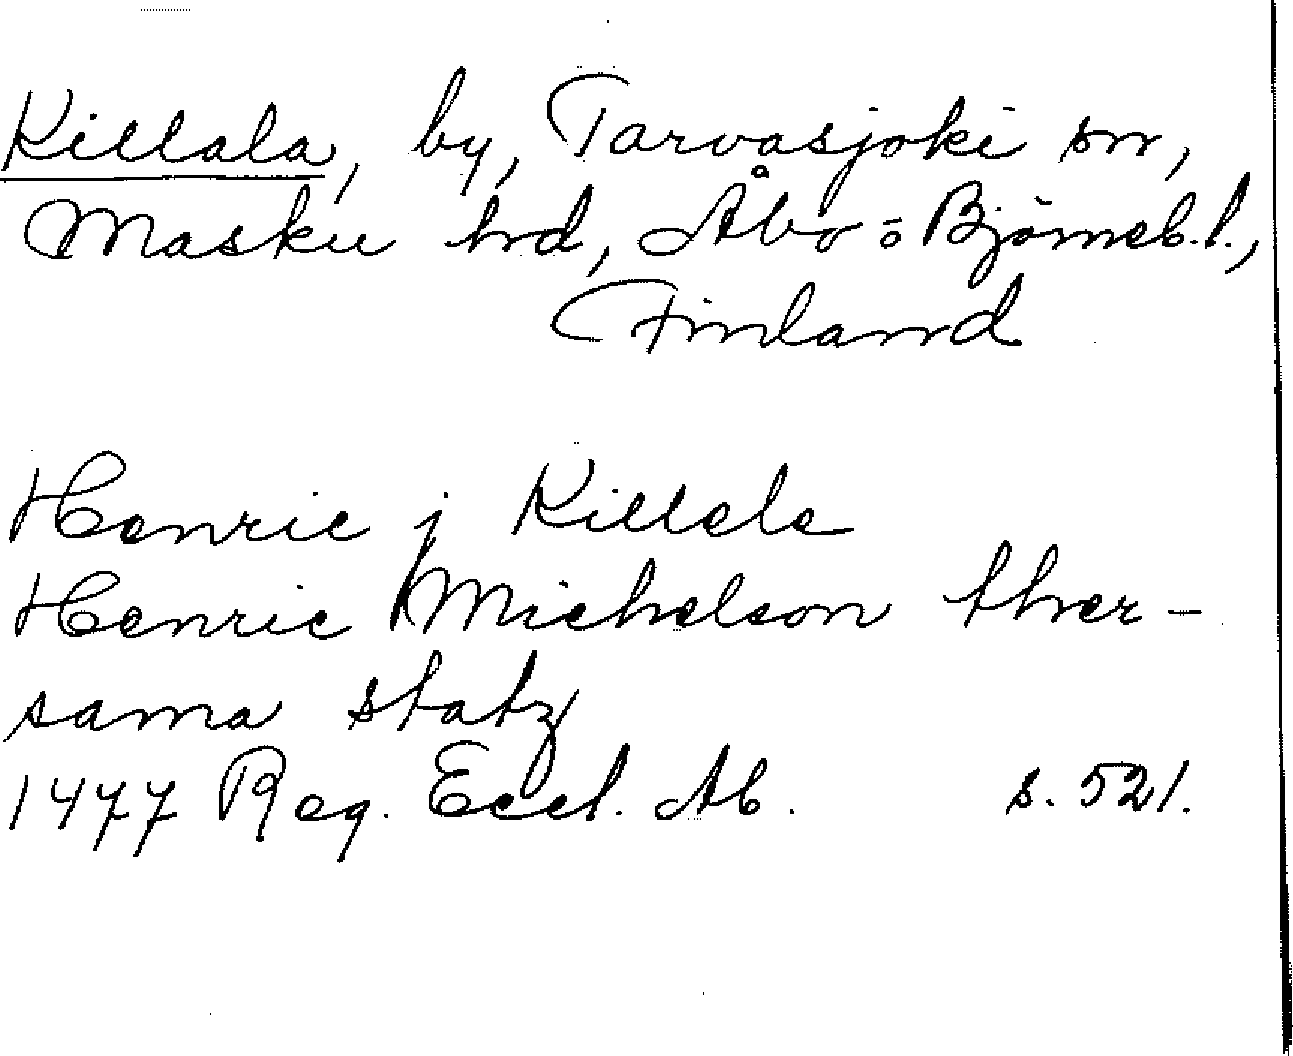 Killala, by, Tarvasjoki sn,
Masku hd, Åbo = Björneb. l.,
Finland
Henric j Killele
Henric Michelson ther-
sama statz
1477 Reg. Eccl. Ab. s. 521.